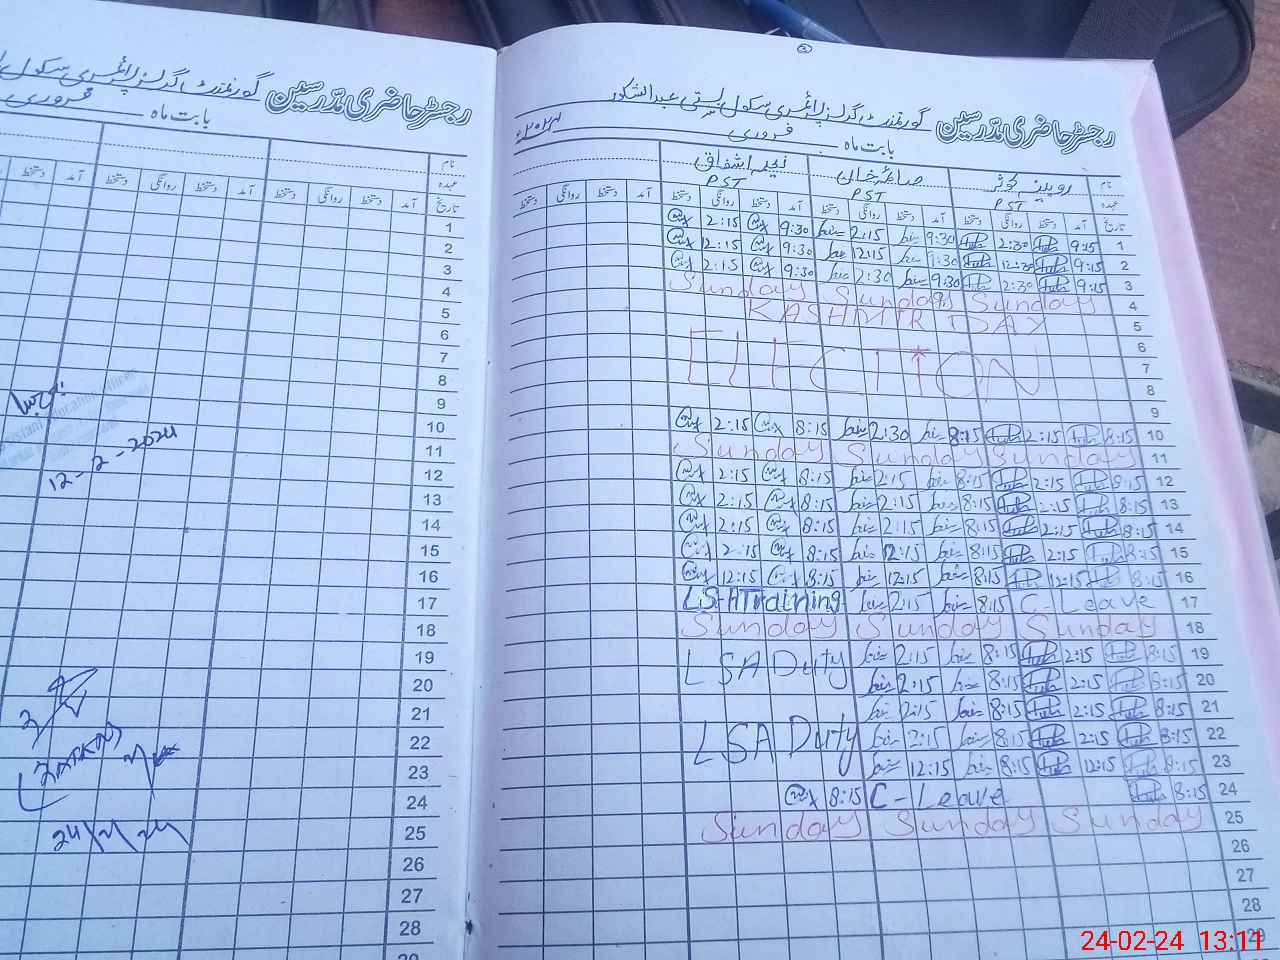 رجسٹر حاضری مدرسین گورنمنٹ گرلز پرائمری سکول
بابت ماہ فروری
نام
عہدہ
تاریخ آمد دستخط روانگی دستخط آمد دستخط روانگی دستخط آمد دستخط
1
2
3
4
5
6
7
8
9
10
11
12
13
14
15
16
17
18
19
20
21
22
23
24
25
26
27
28
12-2-2024
رجسٹر حاضری مدرسین گورنمنٹ گرلز پرائمری سکول بستی عبدالشکور
بابت ماہ فروری ۲۰۲۴ء
نام روبینہ کوثر صائمہ خان نجمہ اشفاق
عہدہ PST PST PST
تاریخ آمد دستخط روانگی دستخط آمد دستخط روانگی دستخط آمد دستخط روانگی دستخط آمد دستخط روانگی دستخط
2:15 9:30 2:15 9:30 2:30 9:15 1
12:15 9:30 12:15 9:30 12:30 9:15 2
2:15 9:30 2:30 9:30 2:30 9:15 3
Sunday Sunday Sunday 4
KASHMIR DAY 5
6
ELECTION 7
8
9
2:15 8:15 2:30 8:15 2:15 8:15 10
Sunday Sunday Sunday 11
2:15 8:15 2:15 8:15 2:15 8:15 12
2:15 8:15 2:15 8:15 2:15 8:15 13
2:15 8:15 2:15 8:15 2:15 8:15 14
2:15 8:15 12:15 8:15 2:15 8:15 15
12:15 8:15 12:15 8:15 12:15 8:15 16
LSA Training 2:15 8:15 C-Leave 17
Sunday Sunday Sunday 18
LSA Duty 2:15 8:15 2:15 8:15 19
2:15 8:15 2:15 8:15 20
2:15 8:15 2:15 8:15 21
LSA Duty 2:15 8:15 2:15 8:15 22
12:15 8:15 12:15 8:15 23
8:15 C-Leave 8:15 24
Sunday Sunday Sunday 25
26
27
28
29
24-02-24 13:11